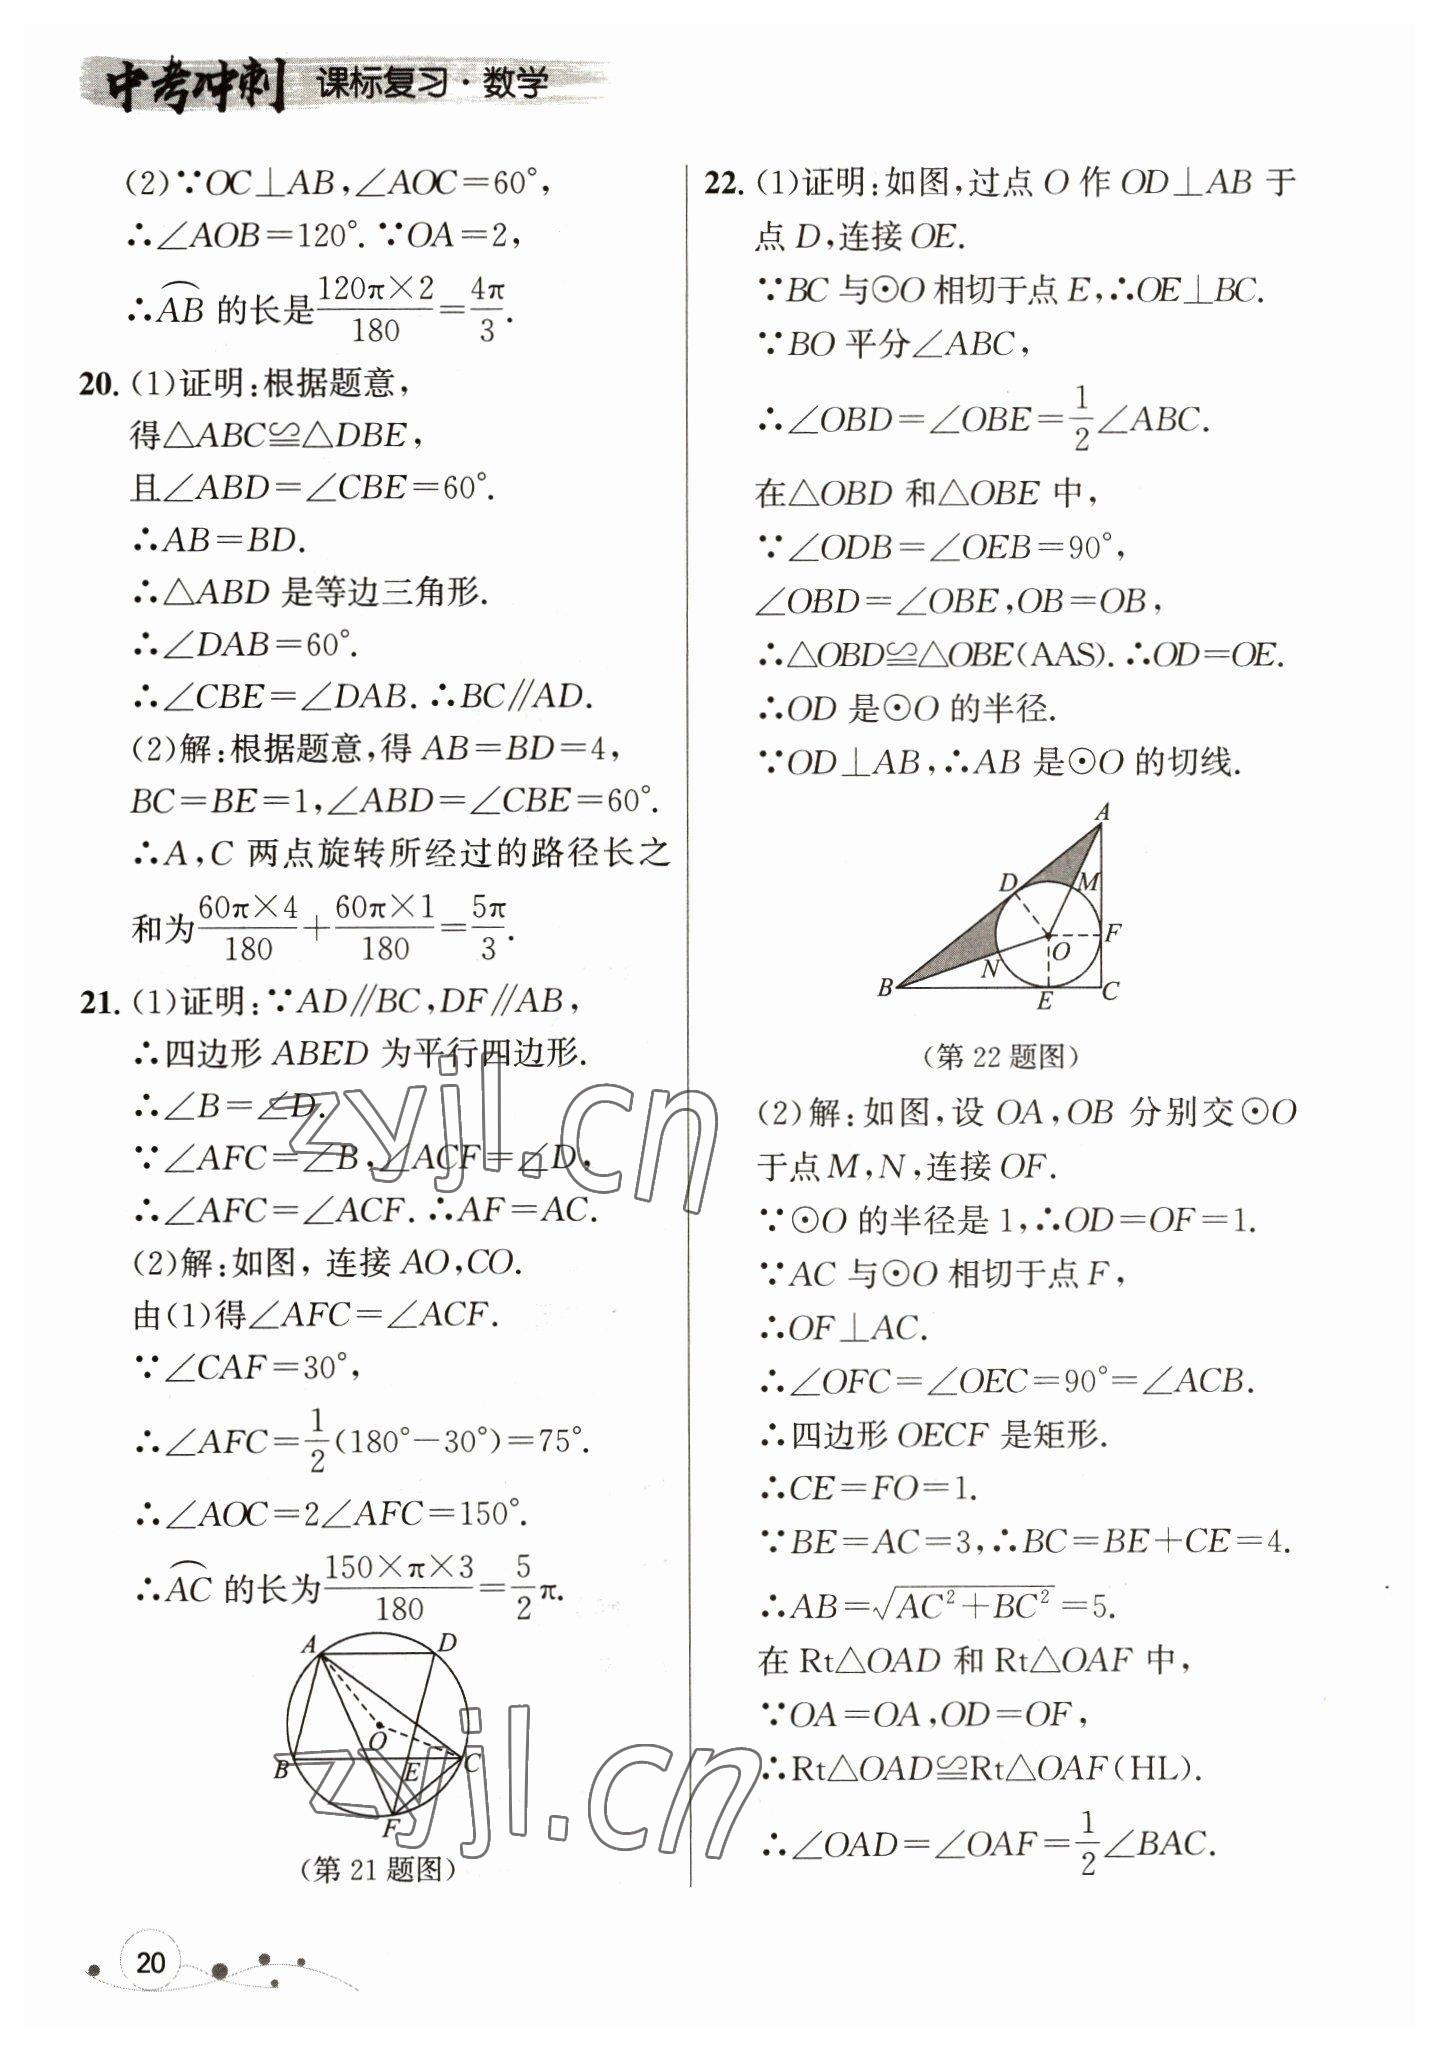 中考冲刺 课标复习·数学
(2)∵OC⊥AB,∠AOC=60°,
∴∠AOB=120°.∵OA=2,
∴$\overset{\frown}{AB}$ 的长是$\frac{120π×2}{180}=\frac{4π}{3}$.
20. (1)证明:根据题意,
得△ABC≌△DBE,
且∠ABD=∠CBE=60°.
∴AB=BD.
∴△ABD 是等边三角形.
∴∠DAB=60°.
∴∠CBE=∠DAB.∴BC∥AD.
(2)解:根据题意,得 AB=BD=4,
BC=BE=1,∠ABD=∠CBE=60°.
∴A,C 两点旋转所经过的路径长之
和为$\frac{60π×4}{180}+\frac{60π×1}{180}=\frac{5π}{3}$.
21. (1)证明:∵AD∥BC,DF∥AB,
∴四边形 ABED 为平行四边形.
∴∠B=∠D.
∵∠AFC=∠B,∠ACF=∠D,
∴∠AFC=∠ACF.∴AF=AC.
(2)解:如图,连接 AO,CO.
由(1)得∠AFC=∠ACF.
∵∠CAF=30°,
∴∠AFC=$\frac{1}{2}$(180°−30°)=75°.
∴∠AOC=2∠AFC=150°.
∴$\overset{\frown}{AC}$ 的长为$\frac{150×π×3}{180}=\frac{5}{2}$π.
A D
O
B E C
F
(第 21 题图)
22. (1)证明:如图,过点 O 作 OD⊥AB 于
点 D,连接 OE.
∵BC 与⊙O 相切于点 E,∴OE⊥BC.
∵BO 平分∠ABC,
∴∠OBD=∠OBE=$\frac{1}{2}$∠ABC.
在△OBD 和△OBE 中,
∵∠ODB=∠OEB=90°,
∠OBD=∠OBE,OB=OB,
∴△OBD≌△OBE(AAS).∴OD=OE.
∴OD 是⊙O 的半径.
∵OD⊥AB,∴AB 是⊙O 的切线.
A
D M
F
O
N
B E C
(第 22 题图)
(2)解:如图,设 OA,OB 分别交⊙O
于点 M,N,连接 OF.
∵⊙O 的半径是 1,∴OD=OF=1.
∵AC 与⊙O 相切于点 F,
∴OF⊥AC.
∴∠OFC=∠OEC=90°=∠ACB.
∴四边形 OECF 是矩形.
∴CE=FO=1.
∵BE=AC=3,∴BC=BE+CE=4.
∴AB=$\sqrt{AC^2+BC^2}$=5.
在 Rt△OAD 和 Rt△OAF 中,
∵OA=OA,OD=OF,
∴Rt△OAD≌Rt△OAF(HL).
∴∠OAD=∠OAF=$\frac{1}{2}$∠BAC.
20
zyjl.cn
zyjl.cn